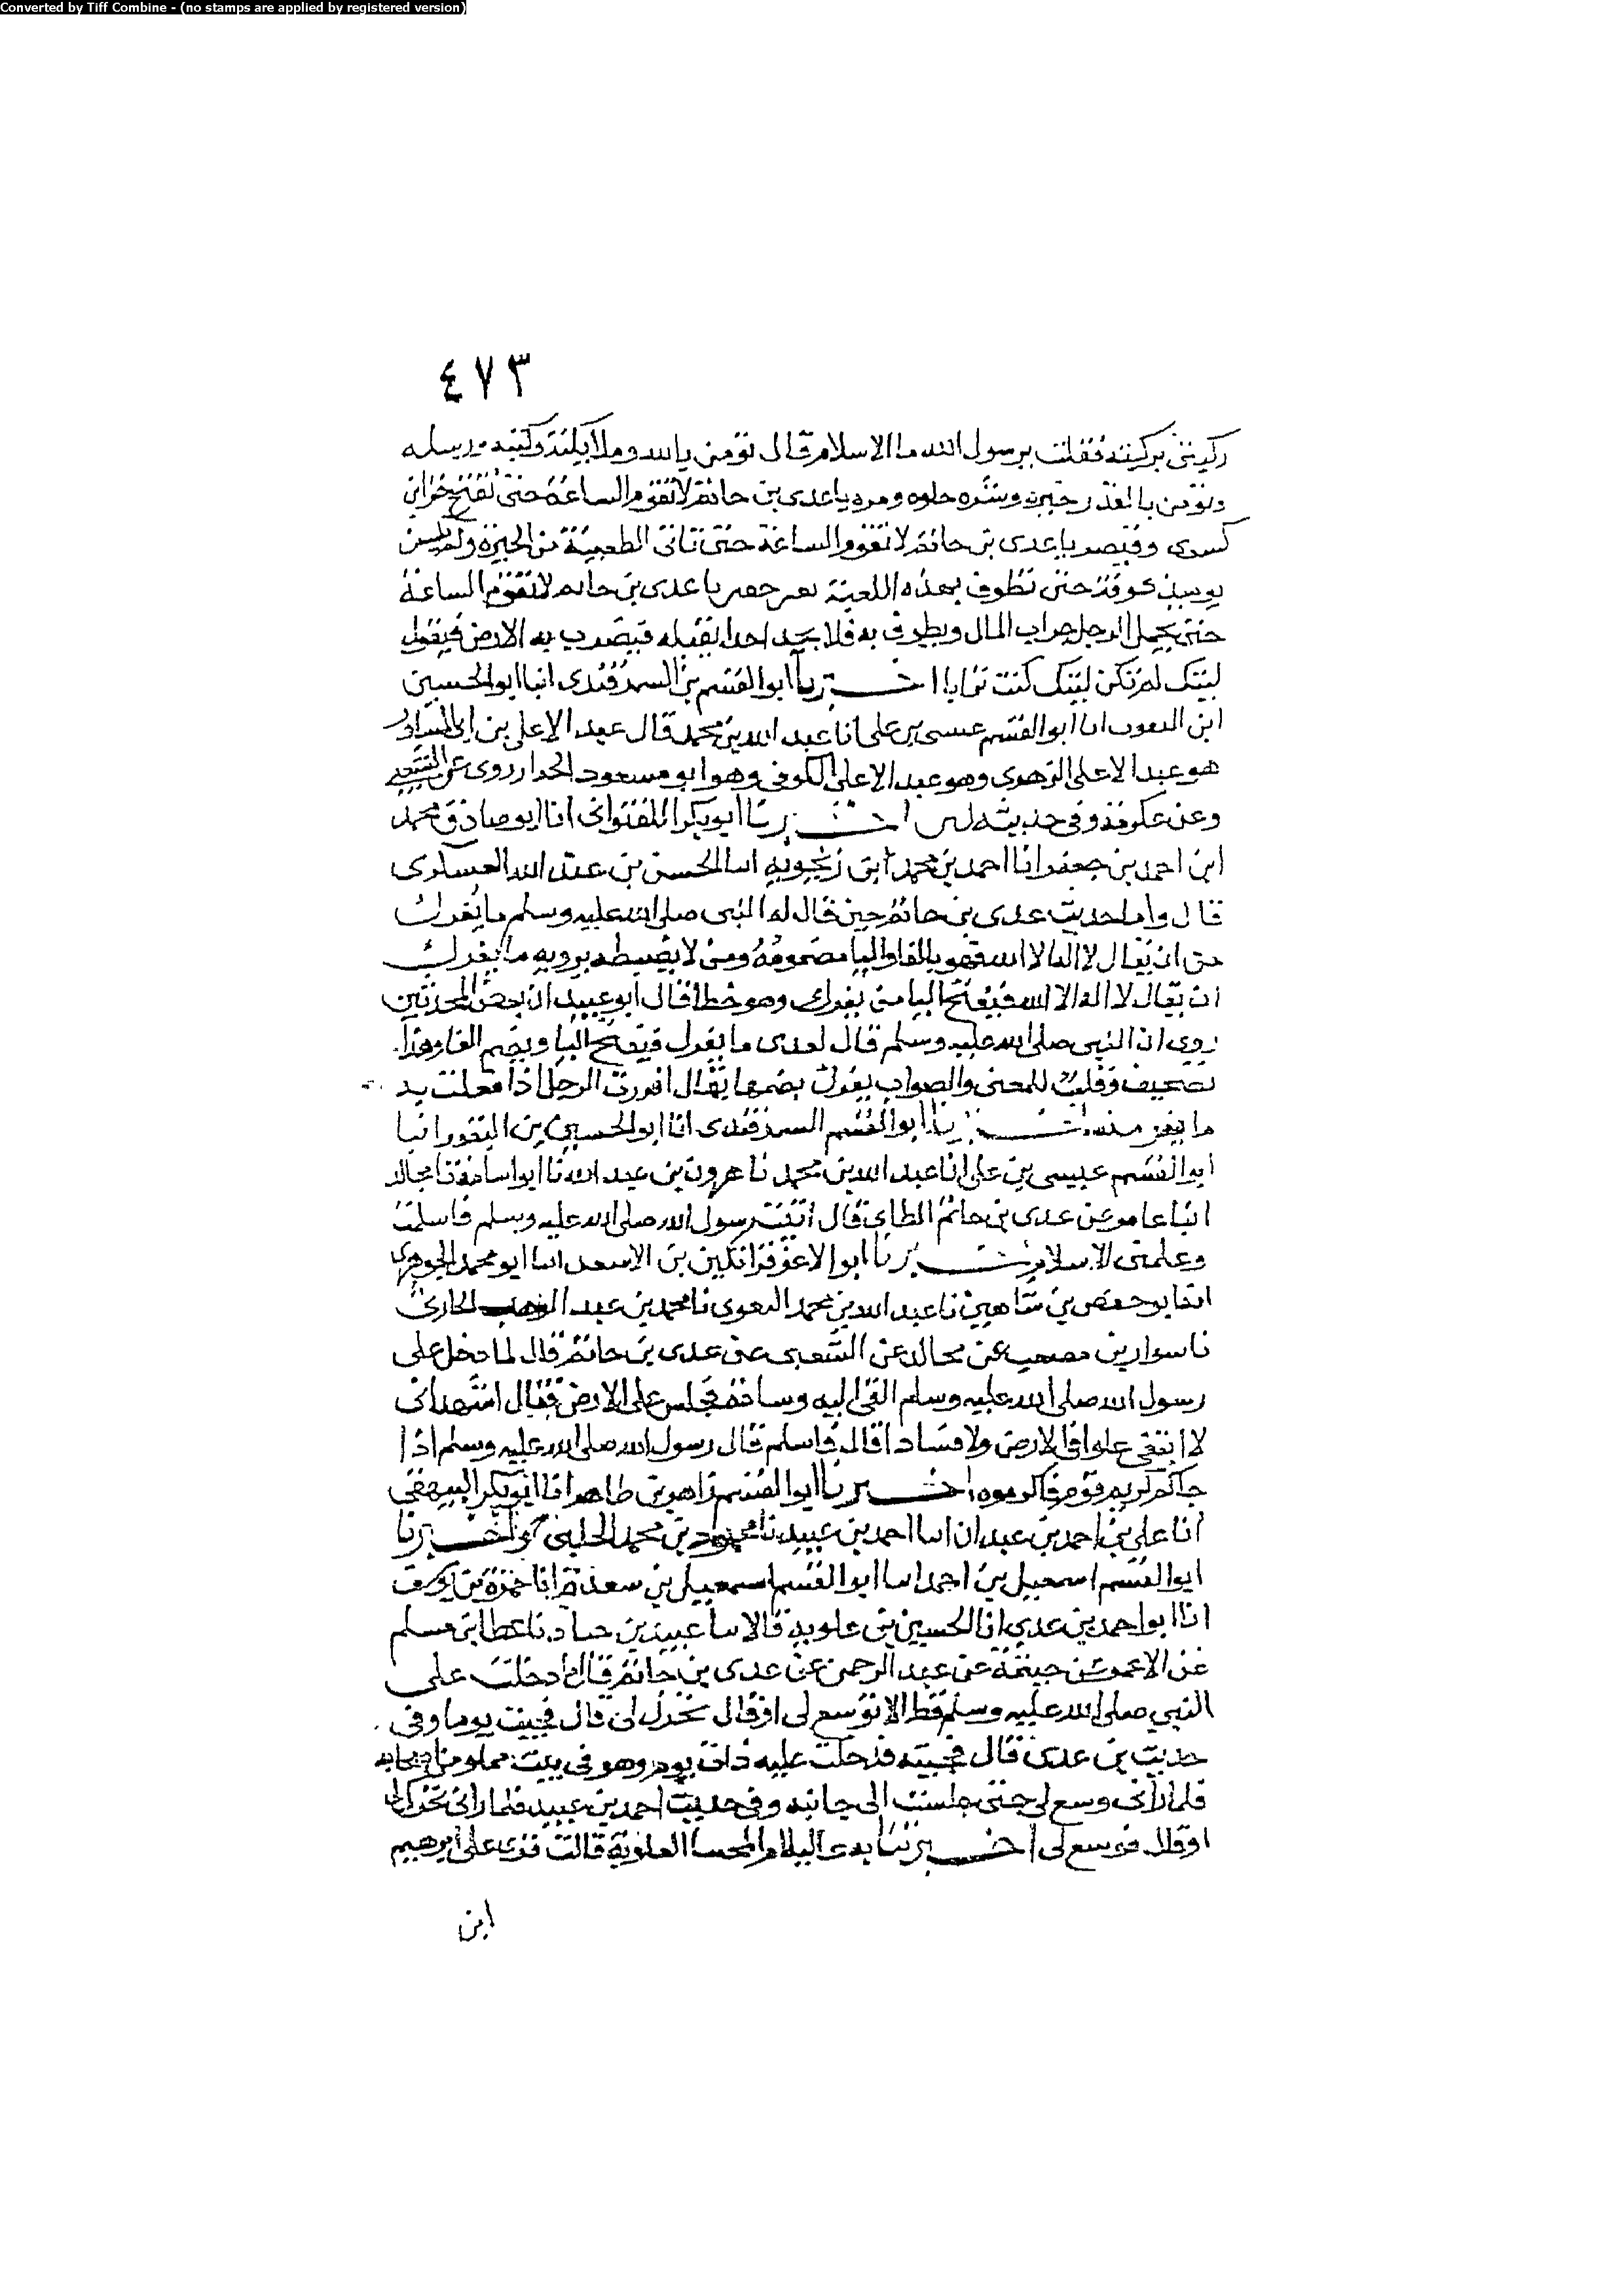 Converted by Tiff Combine - (no stamps are applied by registered version)
٤٧٣
ركبتي بركبته فقلت يرسول الله ما الاسلام قال تؤمن بالله وملايكته وكتبه ورسله
وتؤمن بالقدر خيره وشره حلوه ومره يا عدى بن حاتم لا تقوم الساعة حتى تفتح خزاين
كسرى وقيصر يا عدى بن حاتم لا تقوم الساعة حتى تاتى الظعينة من الحيرة ولم يكن
يوميذ كوفة حتى تطوف بهذه الكعبة بغير خفير يا عدى بن حاتم لا تقوم الساعة
حتى يحمل الرجل جراب المال ويطوف به فلا يجد احدا يقبله فيضرب به الارض فيقول
ليتك لم تكن ليتك كنت ترابا اخبرنا ابو القسم بن السمرقندى انبا ابو الحسين
ابن النقور انا ابو القسم عيسى بن على انا عبد الله بن محمد قال عبد الاعلى بن ابى المساور
هو عبد الاعلى الزهرى وهو عبد الاعلى الكوفى وهو ابو مسعود الجرار روى عن الشعبى
وعن عكرمة وفى حديثه لين اخبرنا ابو بكر اللفتوانى انا ابو صادق محمد
ابن احمد بن جعفر انا احمد بن محمد ابن زنجويه انا الحسن بن عبد الله العسكرى
قال واما حديث عدى بن حاتم حين قال له النبى صلى الله عليه وسلم ما يفرك
من ان يقال لا اله الا الله فهو بالفا واليا مضمومة ومن لا يضبطه يرويه ما يفرك
ان يقال لا اله الا الله فيفتح اليا من يفرك وهو خطا قال ابو عبيد ان بعض المحدثين
روى ان النبى صلى الله عليه وسلم قال لعدى ما يفرك فيفتح اليا ويضم الفا وهذا
تصحيف وقلب للمعنى والصواب يفرك بضمها يقال افررت الرجل اذا فعلت به
ما يفر منه اخبرنا ابو القسم السمرقندى انا ابو الحسين بن النقور انبا
ابو القسم عيسى بن على انا عبد الله بن محمد نا هرون بن عبد الله نا ابو اسامة نا مجالد
انبا عامر عن عدى بن حاتم الطاى قال اتيت رسول الله صلى الله عليه وسلم فاسلمت
وعلمنى الاسلام اخبرنا ابو الاعز قراتكين بن الاسعد انا ابو محمد الجوهرى
انا ابو حفص بن شاهين نا عبد الله بن محمد البغوى نا محمد بن عبد الوهب الحارثى
نا سوار بن مصعب عن مجالد عن الشعبى عن عدى بن حاتم قال لما دخل على
رسول الله صلى الله عليه وسلم القى اليه وسادة فجلس على الارض فقال اشهد انك
لا تبغى علوا فى الارض ولا فسادا قال فاسلم قال رسول الله صلى الله عليه وسلم اذا
جاكم كريم قوم فاكرموه اخبرنا ابو القسم زاهر بن طاهر انا ابو بكر البيهقى
انا على بن احمد بن عبدان انا احمد بن عبيد نا محمود بن محمد الحلبى ح واخبرنا
ابو القسم اسمعيل بن احمد انا ابو القسم اسمعيل بن سعدة انا حمزة بن يوسف
انا ابو احمد بن عدى انا الحسين بن علوية قالا نا عبيد بن جناد نا عطا بن مسلم
عن الاعمش عن خيثمة عن عبد الرحمن عن عدى بن حاتم قال ما دخلت على
النبي صلى الله عليه وسلم قط الا توسع لى او قال تحرك لى قال فجيت يوما وفى
حديث بن عدى قال فجيته فدخلت عليه ذات يوم وهو فى بيت مملو من اصحابه
فلما رآنى وسع لى حتى جلست الى جانبه وفى حديث احمد بن عبيد فلما رانى تحرك لى
او قال توسع لى اخبرتنا ام المجتبا العلوية قالت قرى على ابرهيم
ابن